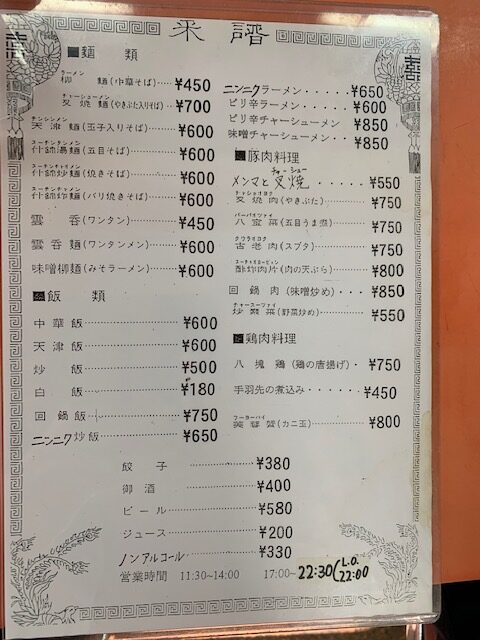 菜譜
■麺 類
ラーメン
柳 麺(中華そば)‥‥¥450
チャーシューメン
叉焼麺(やきぶた入りそば)‥¥700
テンシンメン
天津麺(玉子入りそば)‥‥¥600
什錦湯麺(五目そば)‥‥¥600
什錦炒麺(焼きそば)‥‥¥600
什錦炸麺(バリ焼きそば)‥‥¥600
雲呑(ワンタン)‥‥¥450
雲呑麺(ワンタンメン)‥‥¥600
味噌柳麺(みそラーメン)‥‥¥600
■飯 類
中華飯‥‥¥600
天津飯‥‥¥600
炒飯‥‥¥500
白飯‥‥¥180
回鍋飯‥‥¥750
ニンニク炒飯‥‥¥650
ニンニクラーメン・・・・¥650
ピリ辛ラーメン・・・・¥600
ピリ辛チャーシューメン ¥850
味噌チャーシューメン‥¥850
■豚肉料理
チャーシュー
メンマと叉焼・・・・¥550
叉焼肉(やきぶた)‥‥¥750
八宝菜(五目うま煮)‥‥¥750
古老肉(スブタ)‥‥¥750
酥炸肉片(肉の天ぷら)‥‥¥800
回鍋肉(味噌炒め)‥‥¥850
チャースーツァイ
炒製菜(野菜炒め)‥‥¥550
■鶏肉料理
八塊鶏(鶏の唐揚げ)・¥750
手羽先の煮込み・・・・¥450
フーヨーハイ
芙蓉蟹(カニ玉)‥‥¥800
餃子‥‥¥380
御酒‥‥¥400
ビール‥‥¥580
ジュース‥‥¥200
ノンアルコール‥‥¥330
営業時間 11:30~14:00 17:00~22:30(L.O. 22:00